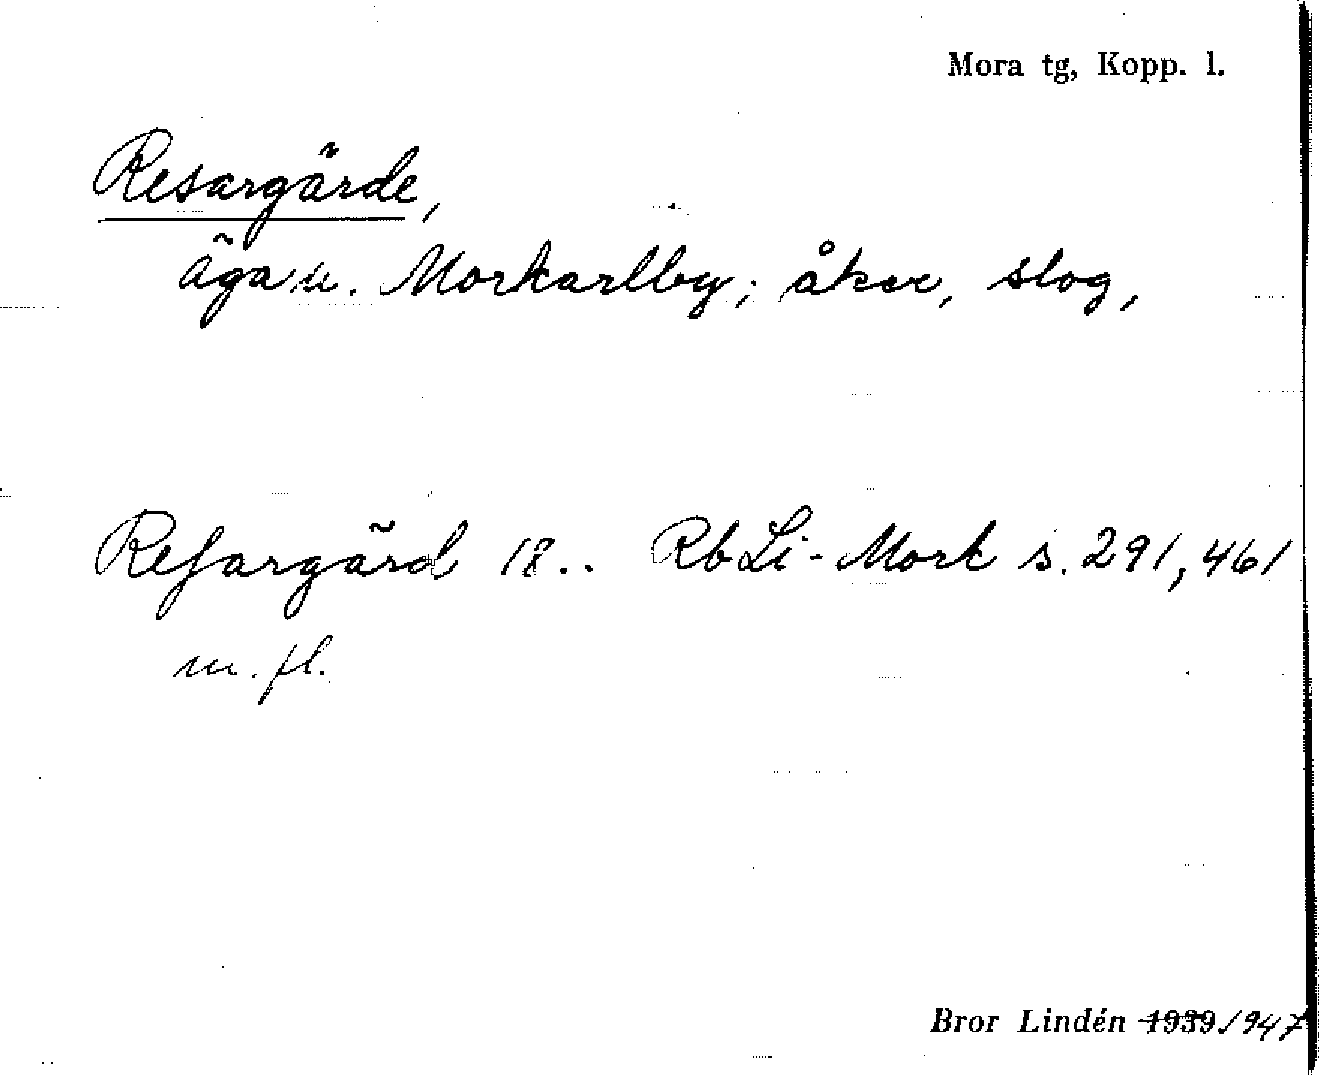 Mora tg, Kopp. l.
Resargärde,
äga u. Morkarlby; åker, slog,
Refargärd 18.. Rb Li-Mork s. 291, 461
m. fl.
Bror Lindén 1939 1947